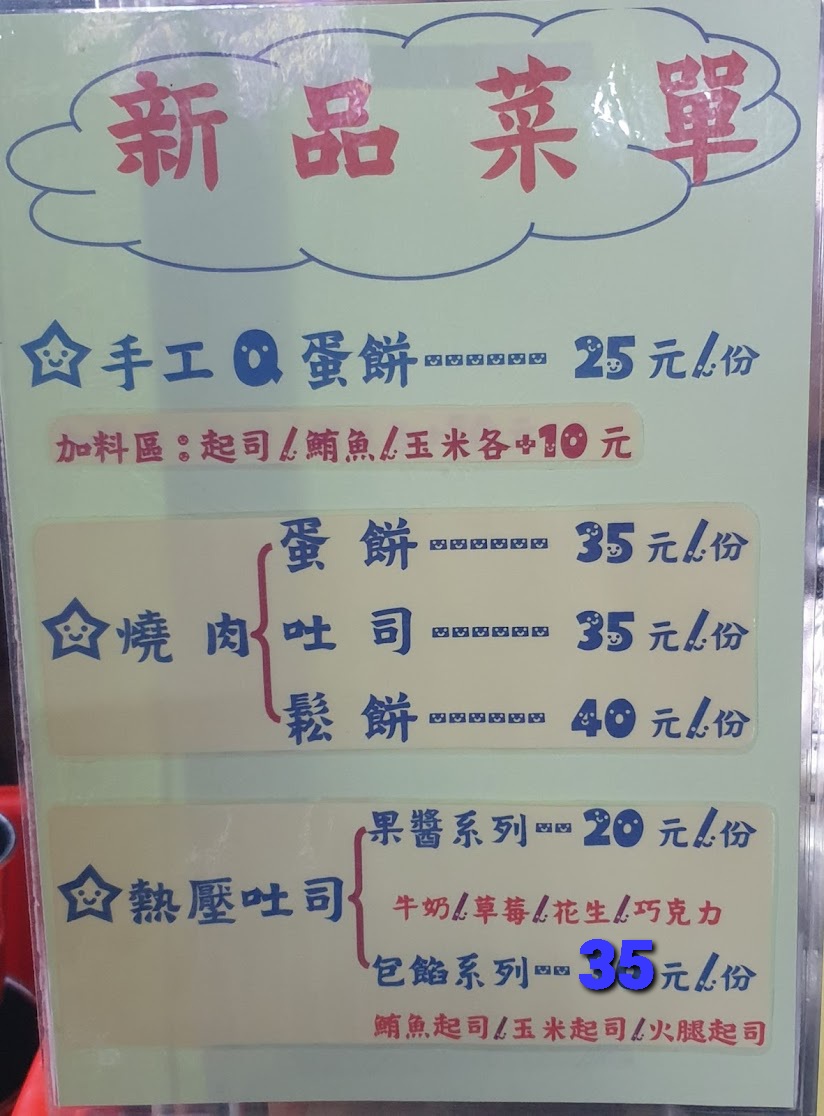 新品菜單
手工Q蛋餅------25元/份
加料區:起司/鮪魚/玉米各+10元
蛋餅------35元/份
燒肉 吐司------35元/份
鬆餅------40元/份
果醬系列--20元/份
熱壓吐司
牛奶/草莓/花生/巧克力
包餡系列--35元/份
鮪魚起司/玉米起司/火腿起司